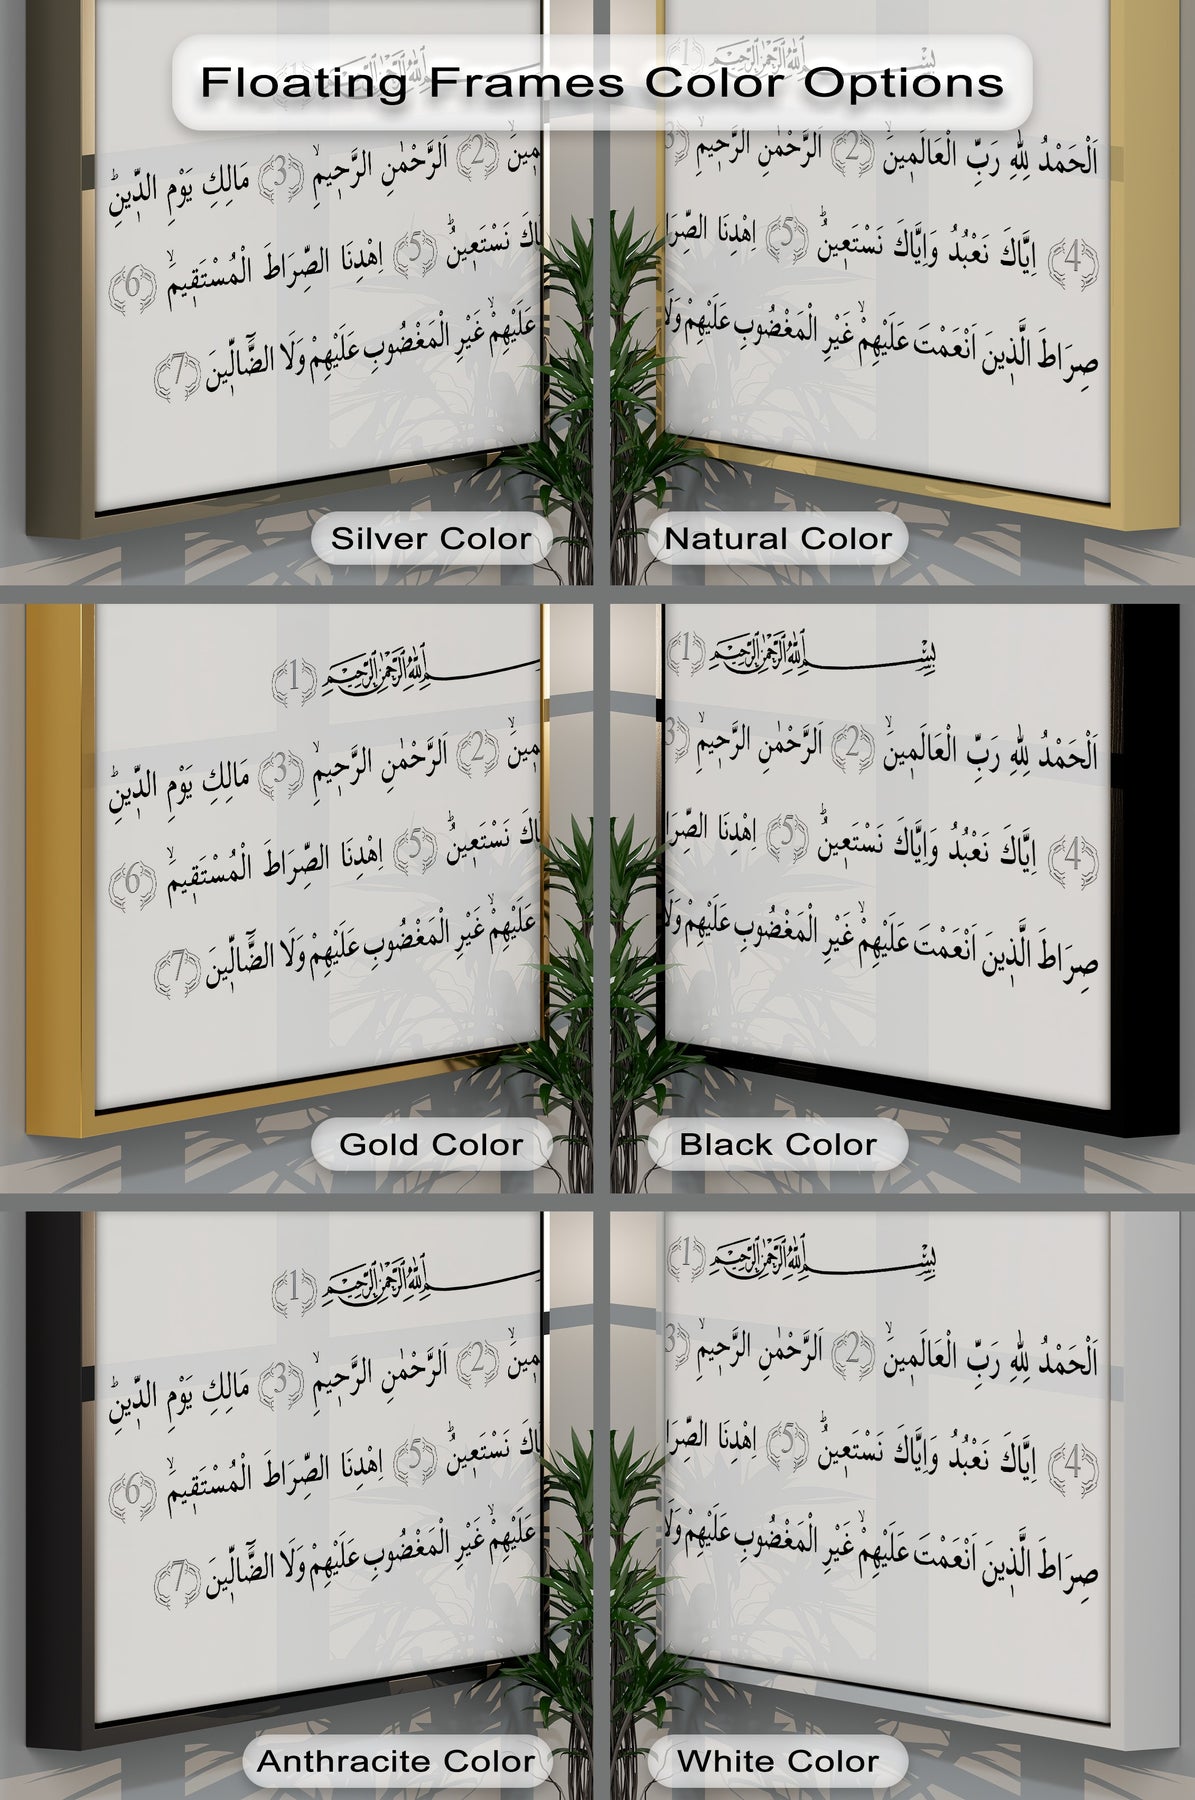 Floating Frames Color Options
﴿1﴾ اللّٰهِ الرَّحْمٰنِ الرَّحِيمِ
اَلرَّحْمٰنِ الرَّحِيمِۙ ﴿3﴾ مَالِكِ يَوْمِ الدِّينِۜ ﴿2﴾
نَسْتَعِينُۜ ﴿5﴾ اِهْدِنَا الصِّرَاطَ الْمُسْتَقِيمَۙ ﴿6﴾
عَلَيْهِمْۙ غَيْرِ الْمَغْضُوبِ عَلَيْهِمْ وَلَا الضَّٓالِّينَ ﴿7﴾
Silver Color
بِسْمِ اللّٰهِ الرَّحْمٰنِ الرَّحِيمِ ﴿1﴾
اَلْحَمْدُ لِلّٰهِ رَبِّ الْعَالَمِينَۙ ﴿2﴾ اَلرَّحْمٰنِ الرَّحِيمِۙ ﴿3
﴿4﴾ اِيَّاكَ نَعْبُدُ وَاِيَّاكَ نَسْتَعِينُۜ ﴿5﴾ اِهْدِنَا
صِرَاطَ الَّذِينَ اَنْعَمْتَ عَلَيْهِمْۙ غَيْرِ الْمَغْضُوبِ عَلَيْهِمْ وَلَا
Natural Color
اللّٰهِ الرَّحْمٰنِ الرَّحِيمِ ﴿1﴾
﴿2﴾ اَلرَّحْمٰنِ الرَّحِيمِۙ ﴿3﴾ مَالِكِ يَوْمِ الدِّينِۜ
نَسْتَعِينُۜ ﴿5﴾ اِهْدِنَا الصِّرَاطَ الْمُسْتَقِيمَۙ ﴿6﴾
عَلَيْهِمْۙ غَيْرِ الْمَغْضُوبِ عَلَيْهِمْ وَلَا الضَّٓالِّينَ ﴿7﴾
Gold Color
بِسْمِ اللّٰهِ الرَّحْمٰنِ الرَّحِيمِ ﴿1﴾
اَلْحَمْدُ لِلّٰهِ رَبِّ الْعَالَمِينَۙ ﴿2﴾ اَلرَّحْمٰنِ الرَّحِيمِۙ ﴿3
﴿4﴾ اِيَّاكَ نَعْبُدُ وَاِيَّاكَ نَسْتَعِينُۜ ﴿5﴾ اِهْدِنَا
صِرَاطَ الَّذِينَ اَنْعَمْتَ عَلَيْهِمْۙ غَيْرِ الْمَغْضُوبِ عَلَيْهِمْ وَلَا
Black Color
اللّٰهِ الرَّحْمٰنِ الرَّحِيمِ ﴿1﴾
﴿2﴾ اَلرَّحْمٰنِ الرَّحِيمِۙ ﴿3﴾ مَالِكِ يَوْمِ الدِّينِۜ
نَسْتَعِينُۜ ﴿5﴾ اِهْدِنَا الصِّرَاطَ الْمُسْتَقِيمَۙ ﴿6﴾
عَلَيْهِمْۙ غَيْرِ الْمَغْضُوبِ عَلَيْهِمْ وَلَا الضَّٓالِّينَ ﴿7﴾
Anthracite Color
بِسْمِ اللّٰهِ الرَّحْمٰنِ الرَّحِيمِ ﴿1﴾
اَلْحَمْدُ لِلّٰهِ رَبِّ الْعَالَمِينَۙ ﴿2﴾ اَلرَّحْمٰنِ الرَّحِيمِۙ ﴿3
﴿4﴾ اِيَّاكَ نَعْبُدُ وَاِيَّاكَ نَسْتَعِينُۜ ﴿5﴾ اِهْدِنَا
صِرَاطَ الَّذِينَ اَنْعَمْتَ عَلَيْهِمْۙ غَيْرِ الْمَغْضُوبِ عَلَيْهِمْ وَلَا
White Color